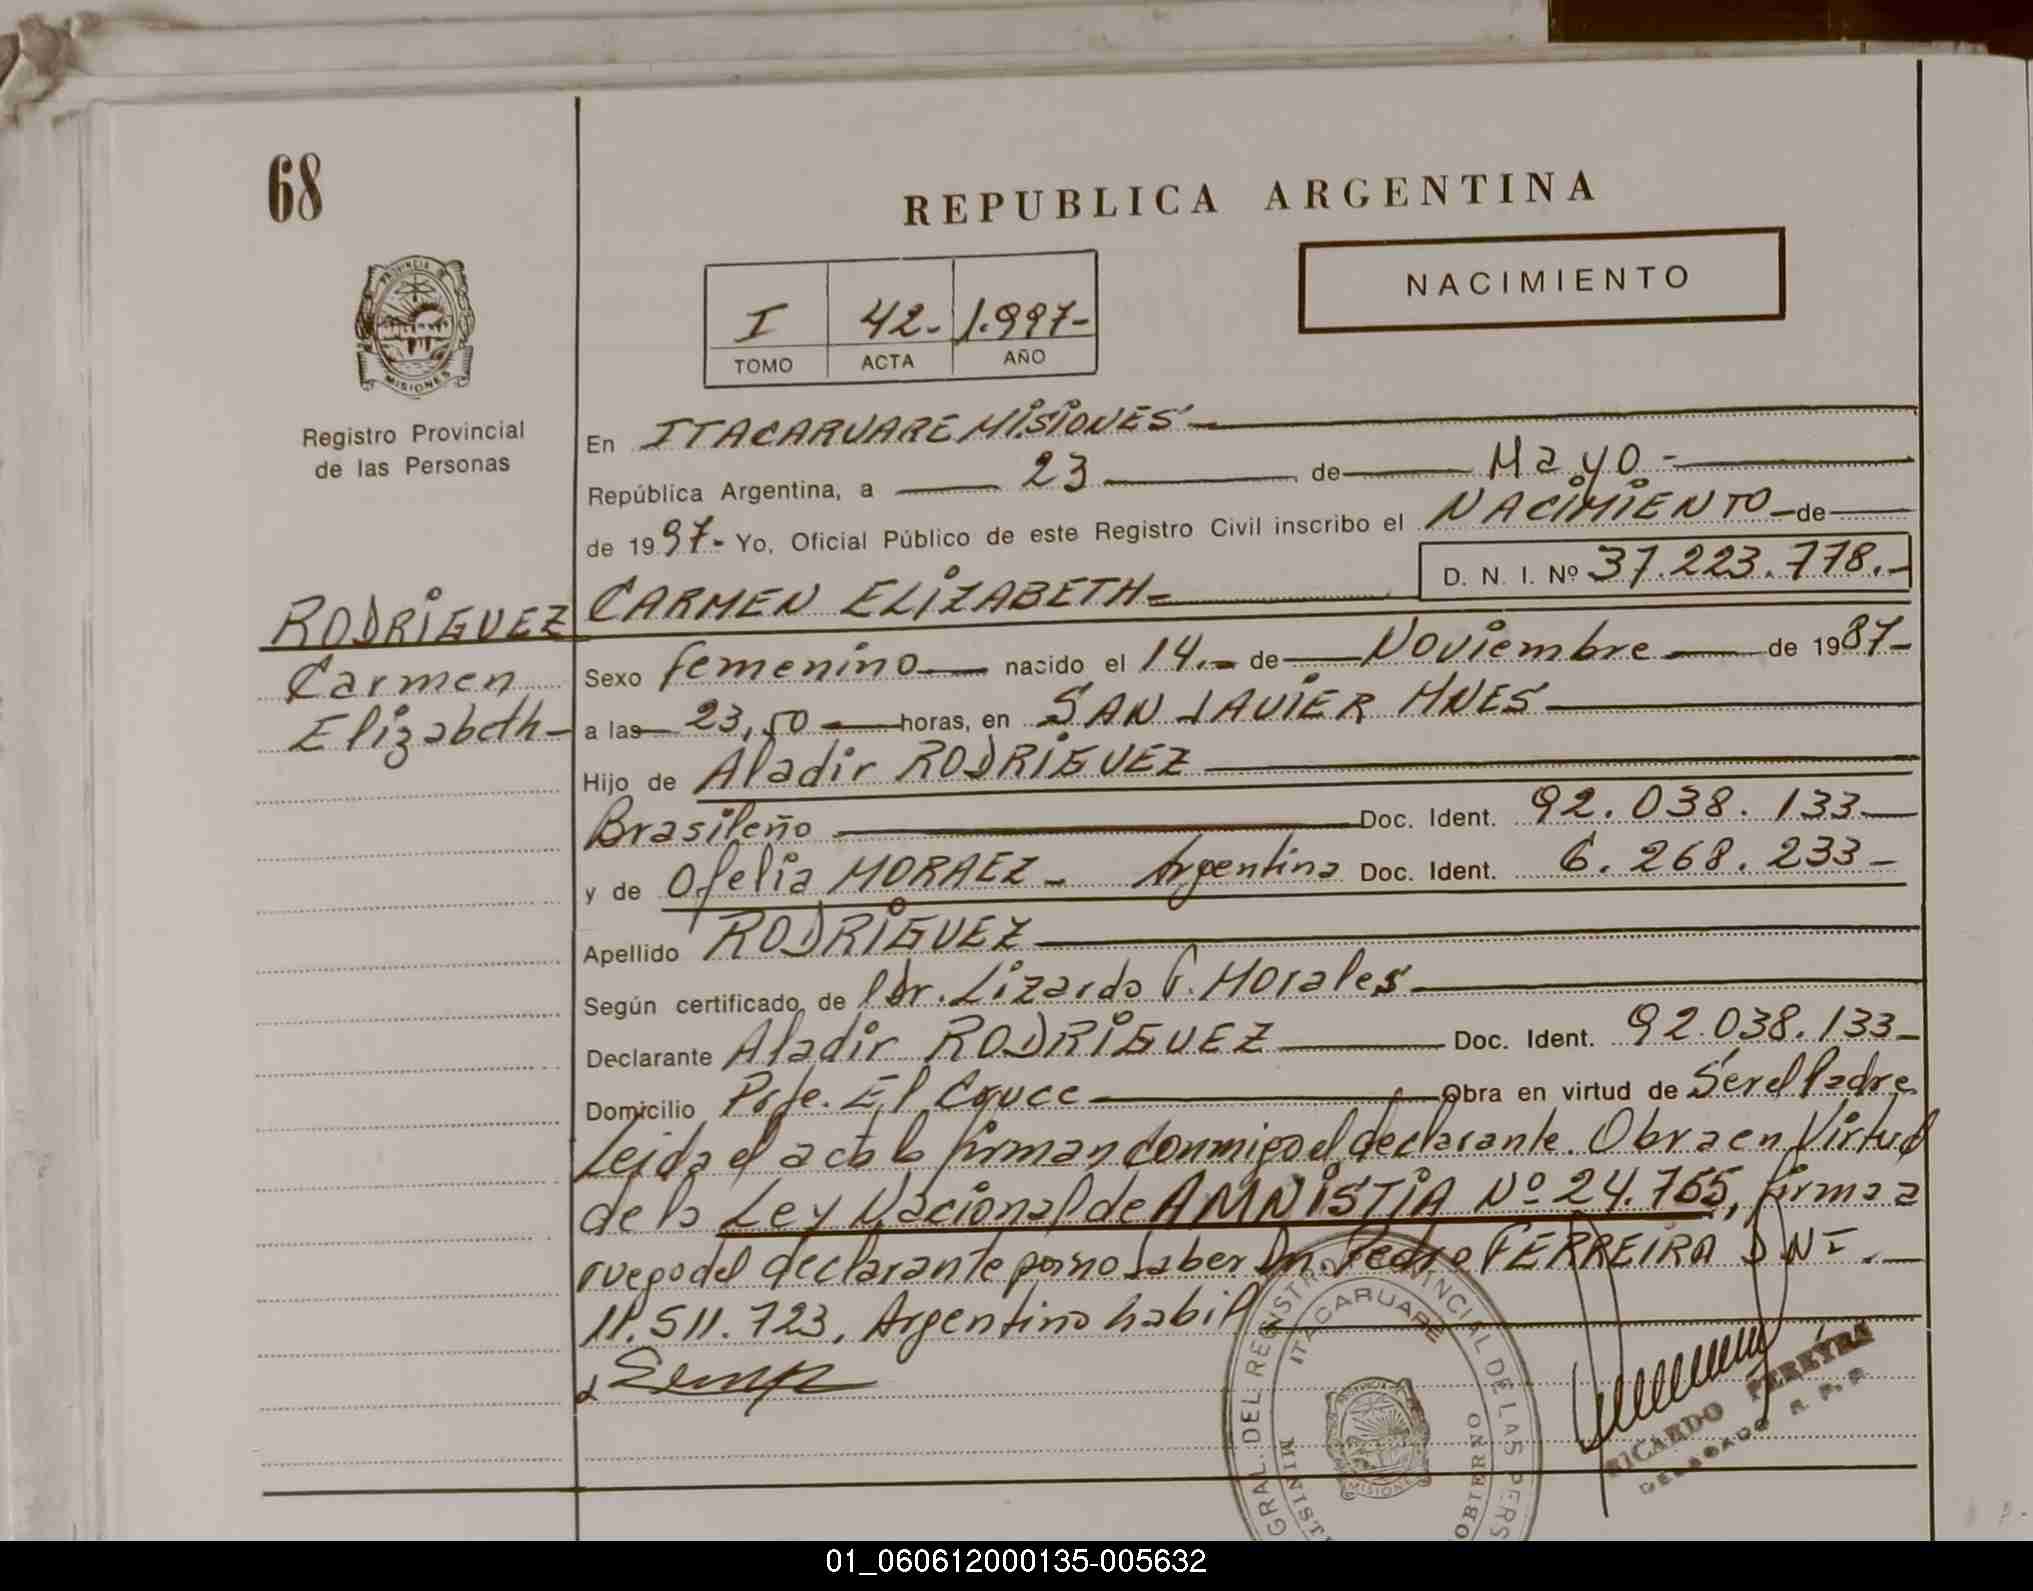 68
REPUBLICA ARGENTINA
NACIMIENTO
I 42- 1.997-
TOMO ACTA AÑO
PROVINCIA DE
MISIONES
Registro Provincial
de las Personas
En ITACARUARE MISIONES
República Argentina, a 23 de Mayo -
de 1997- Yo, Oficial Público de este Registro Civil inscribo el NACIMIENTO de
D. N. I. Nº 37.223.778.-
RODRIGUEZ CARMEN ELIZABETH=
Carmen
Elizabeth-
Sexo femenino nacido el 14.- de Noviembre de 1987-
a las 23,50 horas, en SAN JAVIER MNES
Hijo de Aladir RODRIGUEZ
Brasileño Doc. Ident. 92.038.133
y de Ofelia MORAEZ - Argentina Doc. Ident. 6.268.233-
Apellido RODRIGUEZ
Según certificado de Dr. Lizardo G. Morales
Declarante Aladir RODRIGUEZ Doc. Ident. 92.038.133-
Domicilio Pje. El Cruce Obra en virtud de Ser el Padre
Leida el acta la firman conmigo el declarante. Obra en Virtud
de la Ley Nacional de AMNISTIA Nº 24.755, firma a
ruego del declarante por no saber Dn. Pedro FERREIRA DNI.
11.511.723, Argentino habil
GRAL. DEL REGISTRO PROVINCIAL DE LAS PERS
ITACARUARE
MINIST
GOBIERNO
MISIONES
RICARDO PEREYRA
DELEGADO R. P. P.
01_060612000135-005632